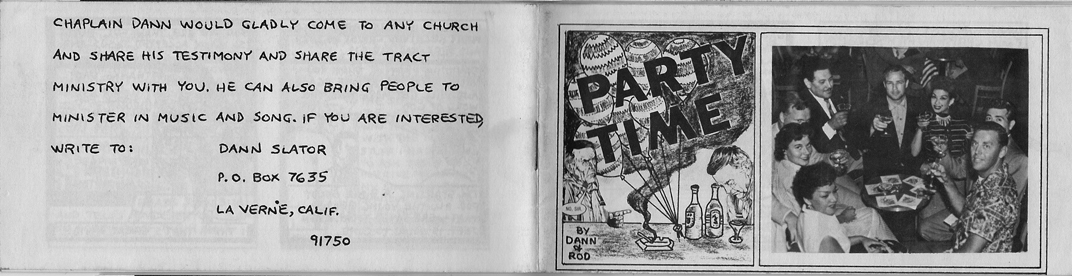 CHAPLAIN DANN WOULD GLADLY COME TO ANY CHURCH
AND SHARE HIS TESTIMONY AND SHARE THE TRACT
MINISTRY WITH YOU. HE CAN ALSO BRING PEOPLE TO
MINISTER IN MUSIC AND SONG. IF YOU ARE INTERESTED,
WRITE TO: DANN SLATOR
P.O. BOX 7635
LA VERNE, CALIF.
91750
PARTY
TIME
BY
DANN
& ROD